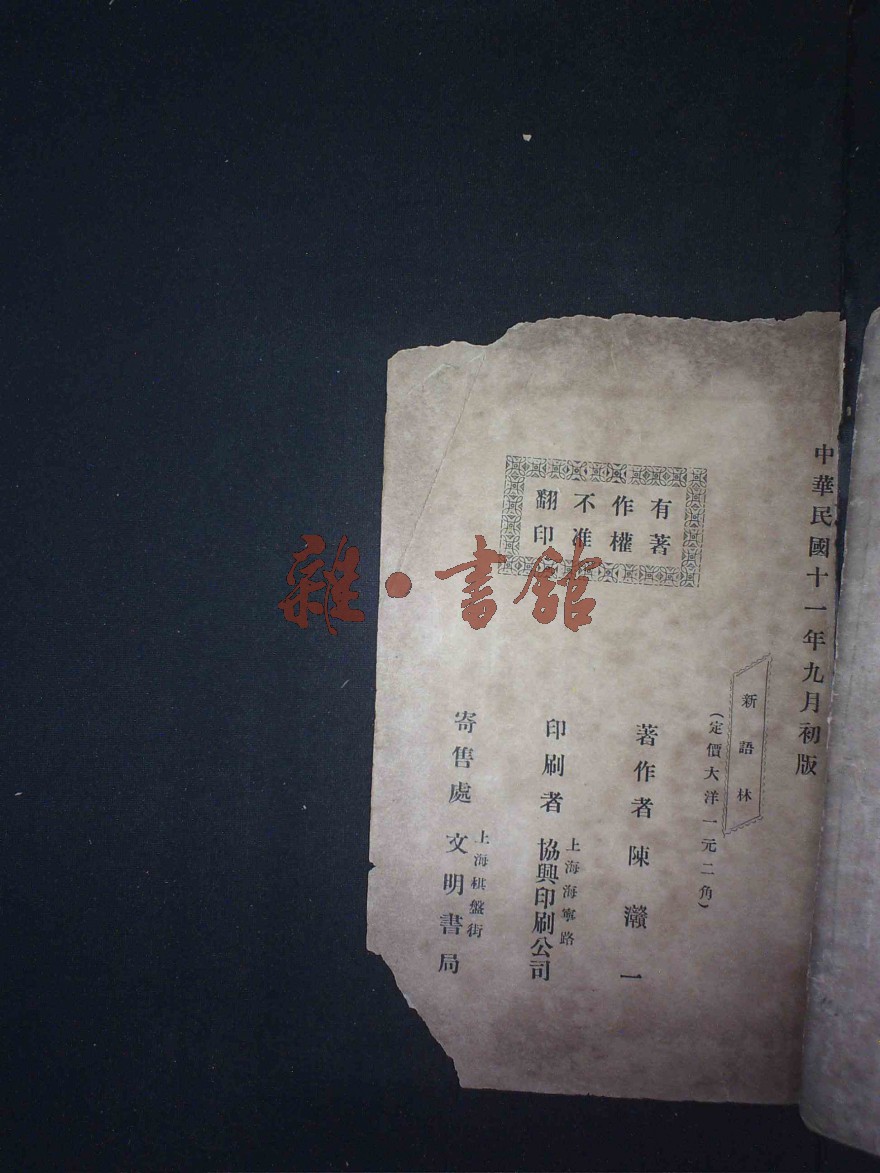 中華民國十一年九月初版
新語林
(定價大洋一元二角)
有著
作權
不准
翻印
著作者 陳灨一
印刷者 上海海寧路 協興印刷公司
寄售處 上海棋盤街 文明書局
雜·書館